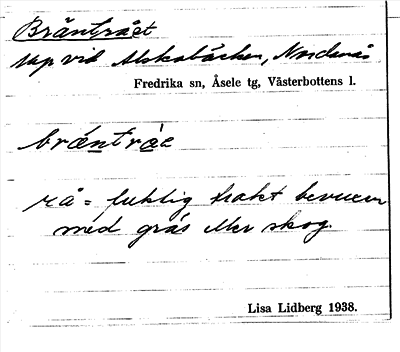 Bräntrået
upp vid Alskabäcken, Nordanås
Fredrika sn, Åsele tg, Västerbottens l.
bräntråe
rå = fuktig trakt bevuxen
med gräs eller skog.
Lisa Lidberg 1938.